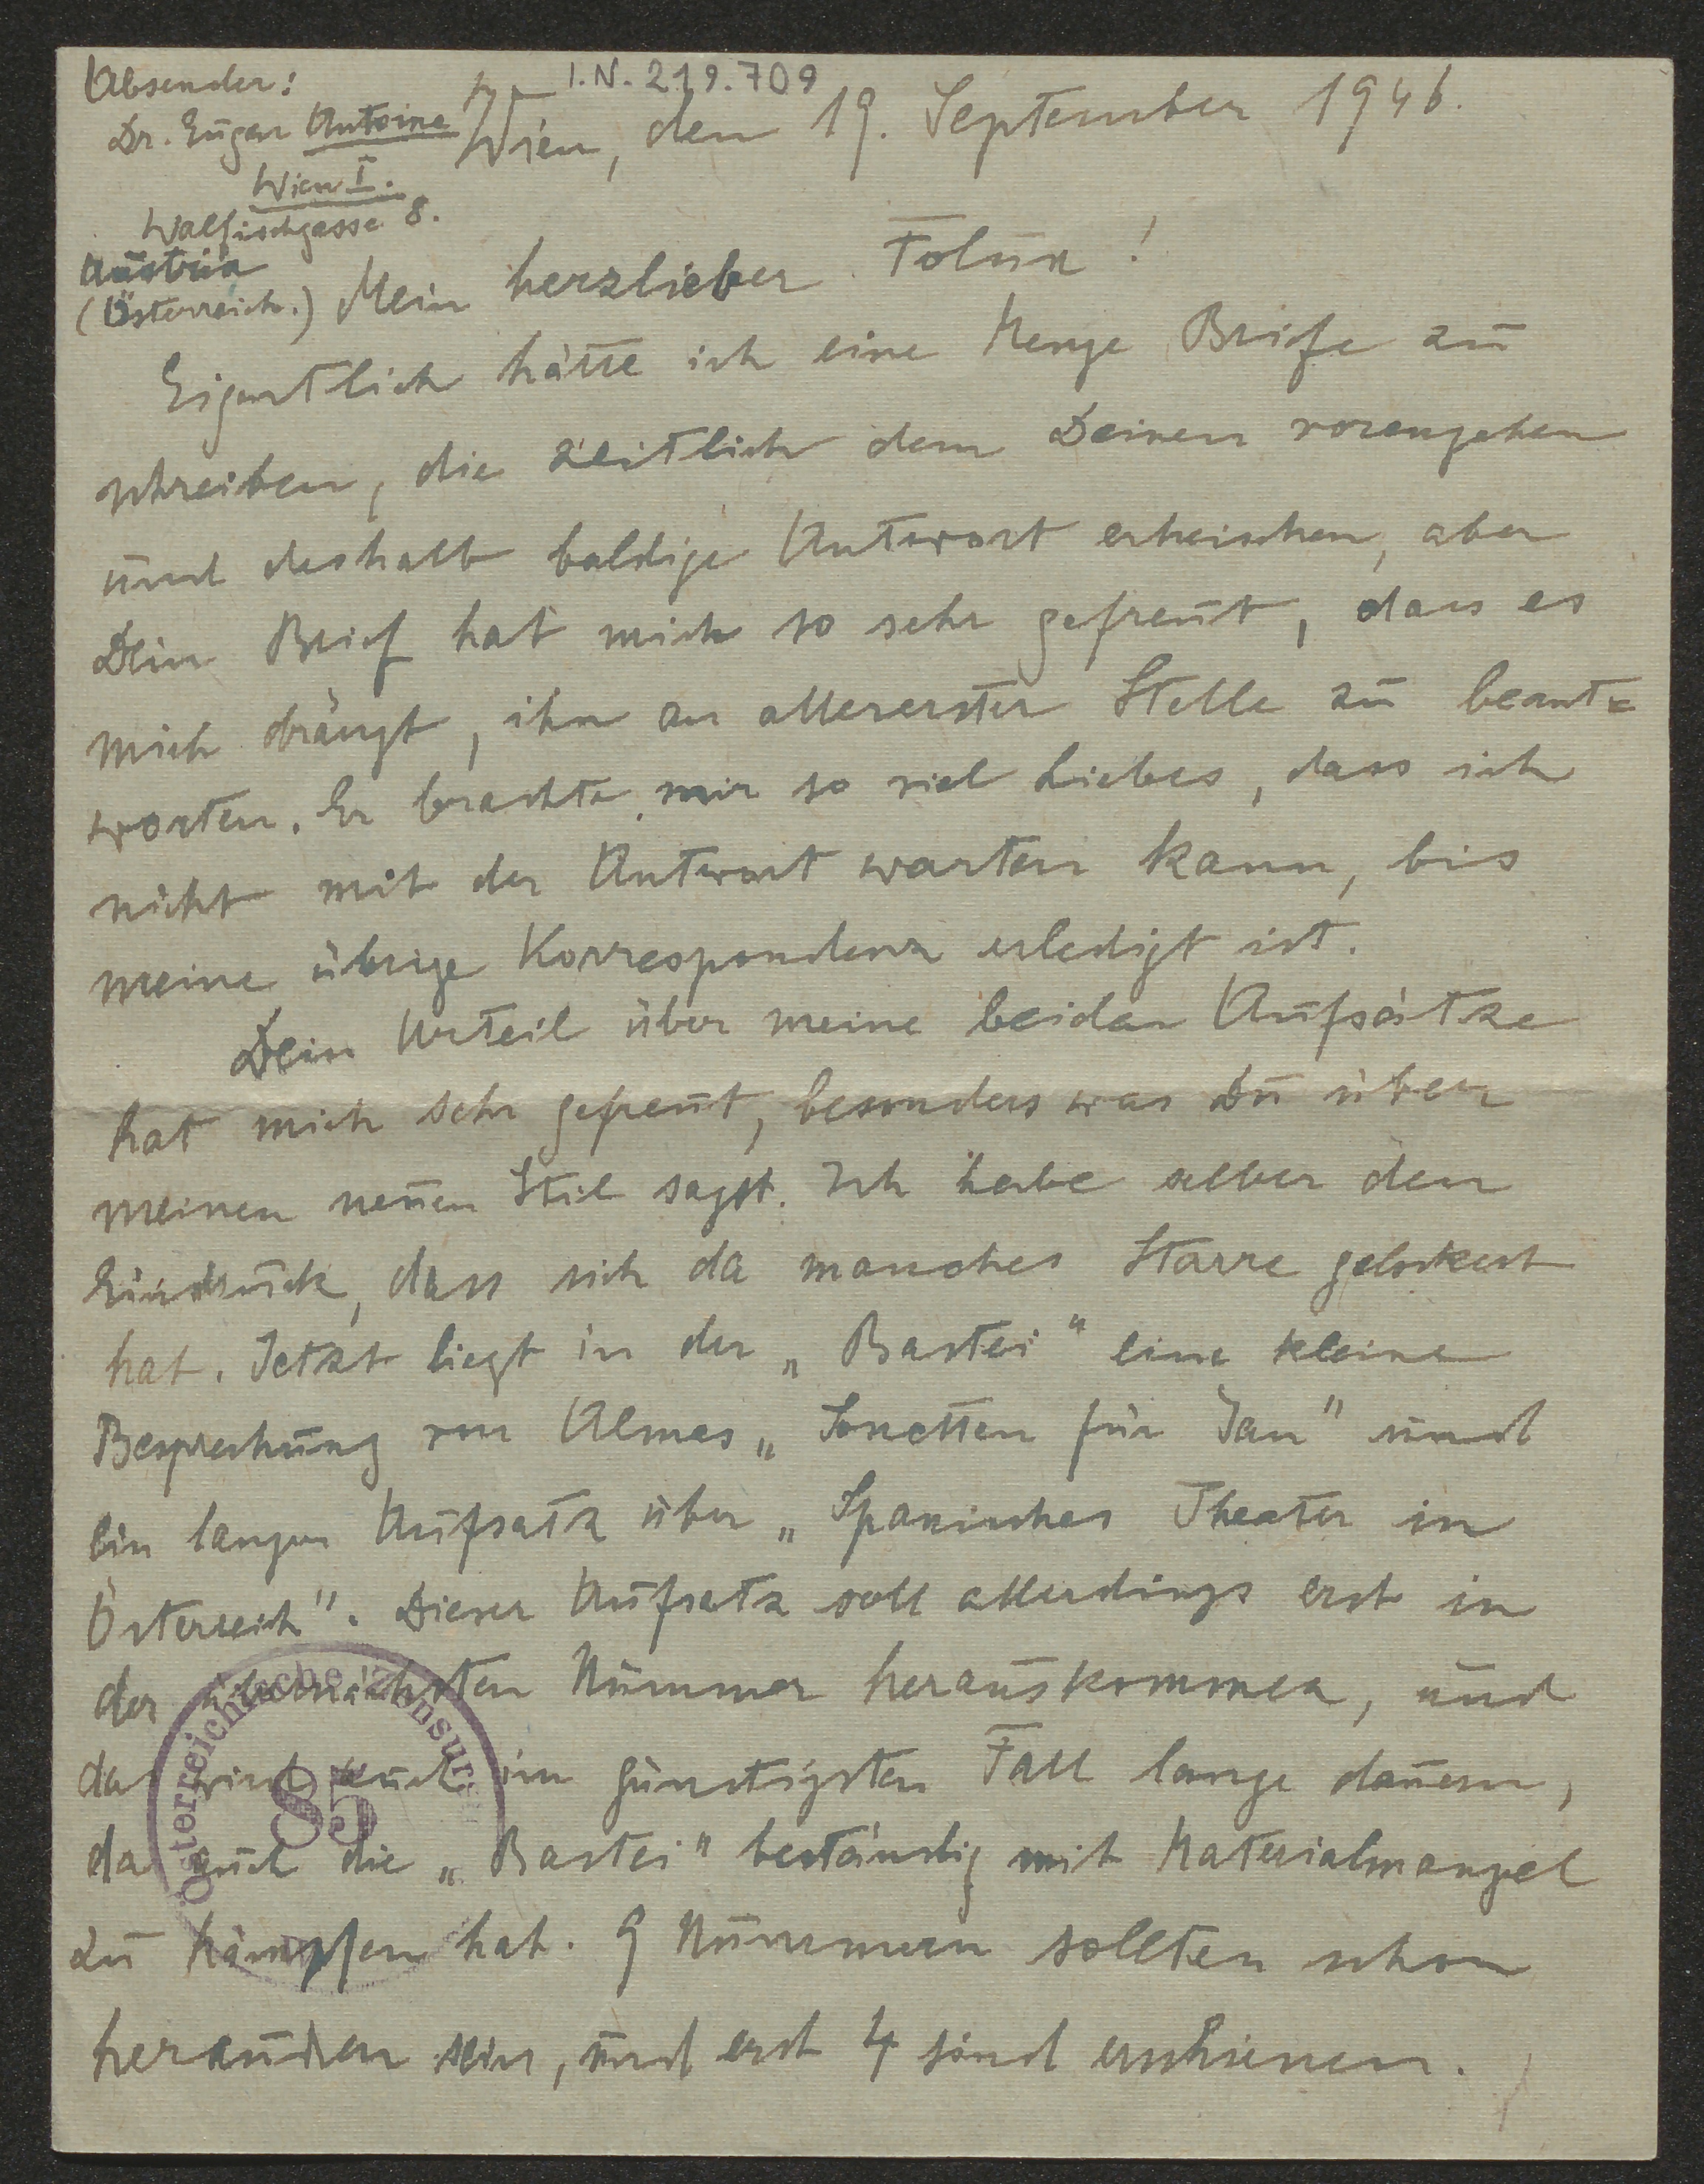 I.N. 219.709
Absender:
Dr. Eugen Antoine
Wien I.
Walfischgasse 8.
Austria
(Österreich.)
Wien, den 19. September 1946.
Mein herzlieber Tolnx!
Eigentlich hätte ich eine Menge Briefe zu
schreiben, die zeitlich dem Deinen vorangehen
und deshalb baldige Antwort erheischen, aber
Dein Brief hat mich so sehr gefreut, dass es
mich drängt, ihn an allererster Stelle zu beant=
worten. Er brachte mir so viel Liebes, dass ich
nicht mit der Antwort warten kann, bis
meine übrige Korrespondenz erledigt ist.
Dein Urteil über meine beiden Aufsätze
hat mich sehr gefreut, besonders was Du über
meinen neuen Stil sagst. Ich habe selber den
Eindruck, dass sich da manches Starre gelockert
hat. Jetzt liegt in der „Bastei" eine kleine
Besprechung von Almas „Sonetten für Jan" und
ein langer Aufsatz über „Spanisches Theater in
Österreich". Dieser Aufsatz soll allerdings erst in
der übernächsten Nummer herauskommen, und
das wird auch im günstigsten Fall lange dauern,
da auch die „Bastei" beständig mit Materialmangel
zu kämpfen hat. 9 Nummern sollten schon
heraußen sein, und erst 4 sind erschienen.
Österreichische Zensur
85